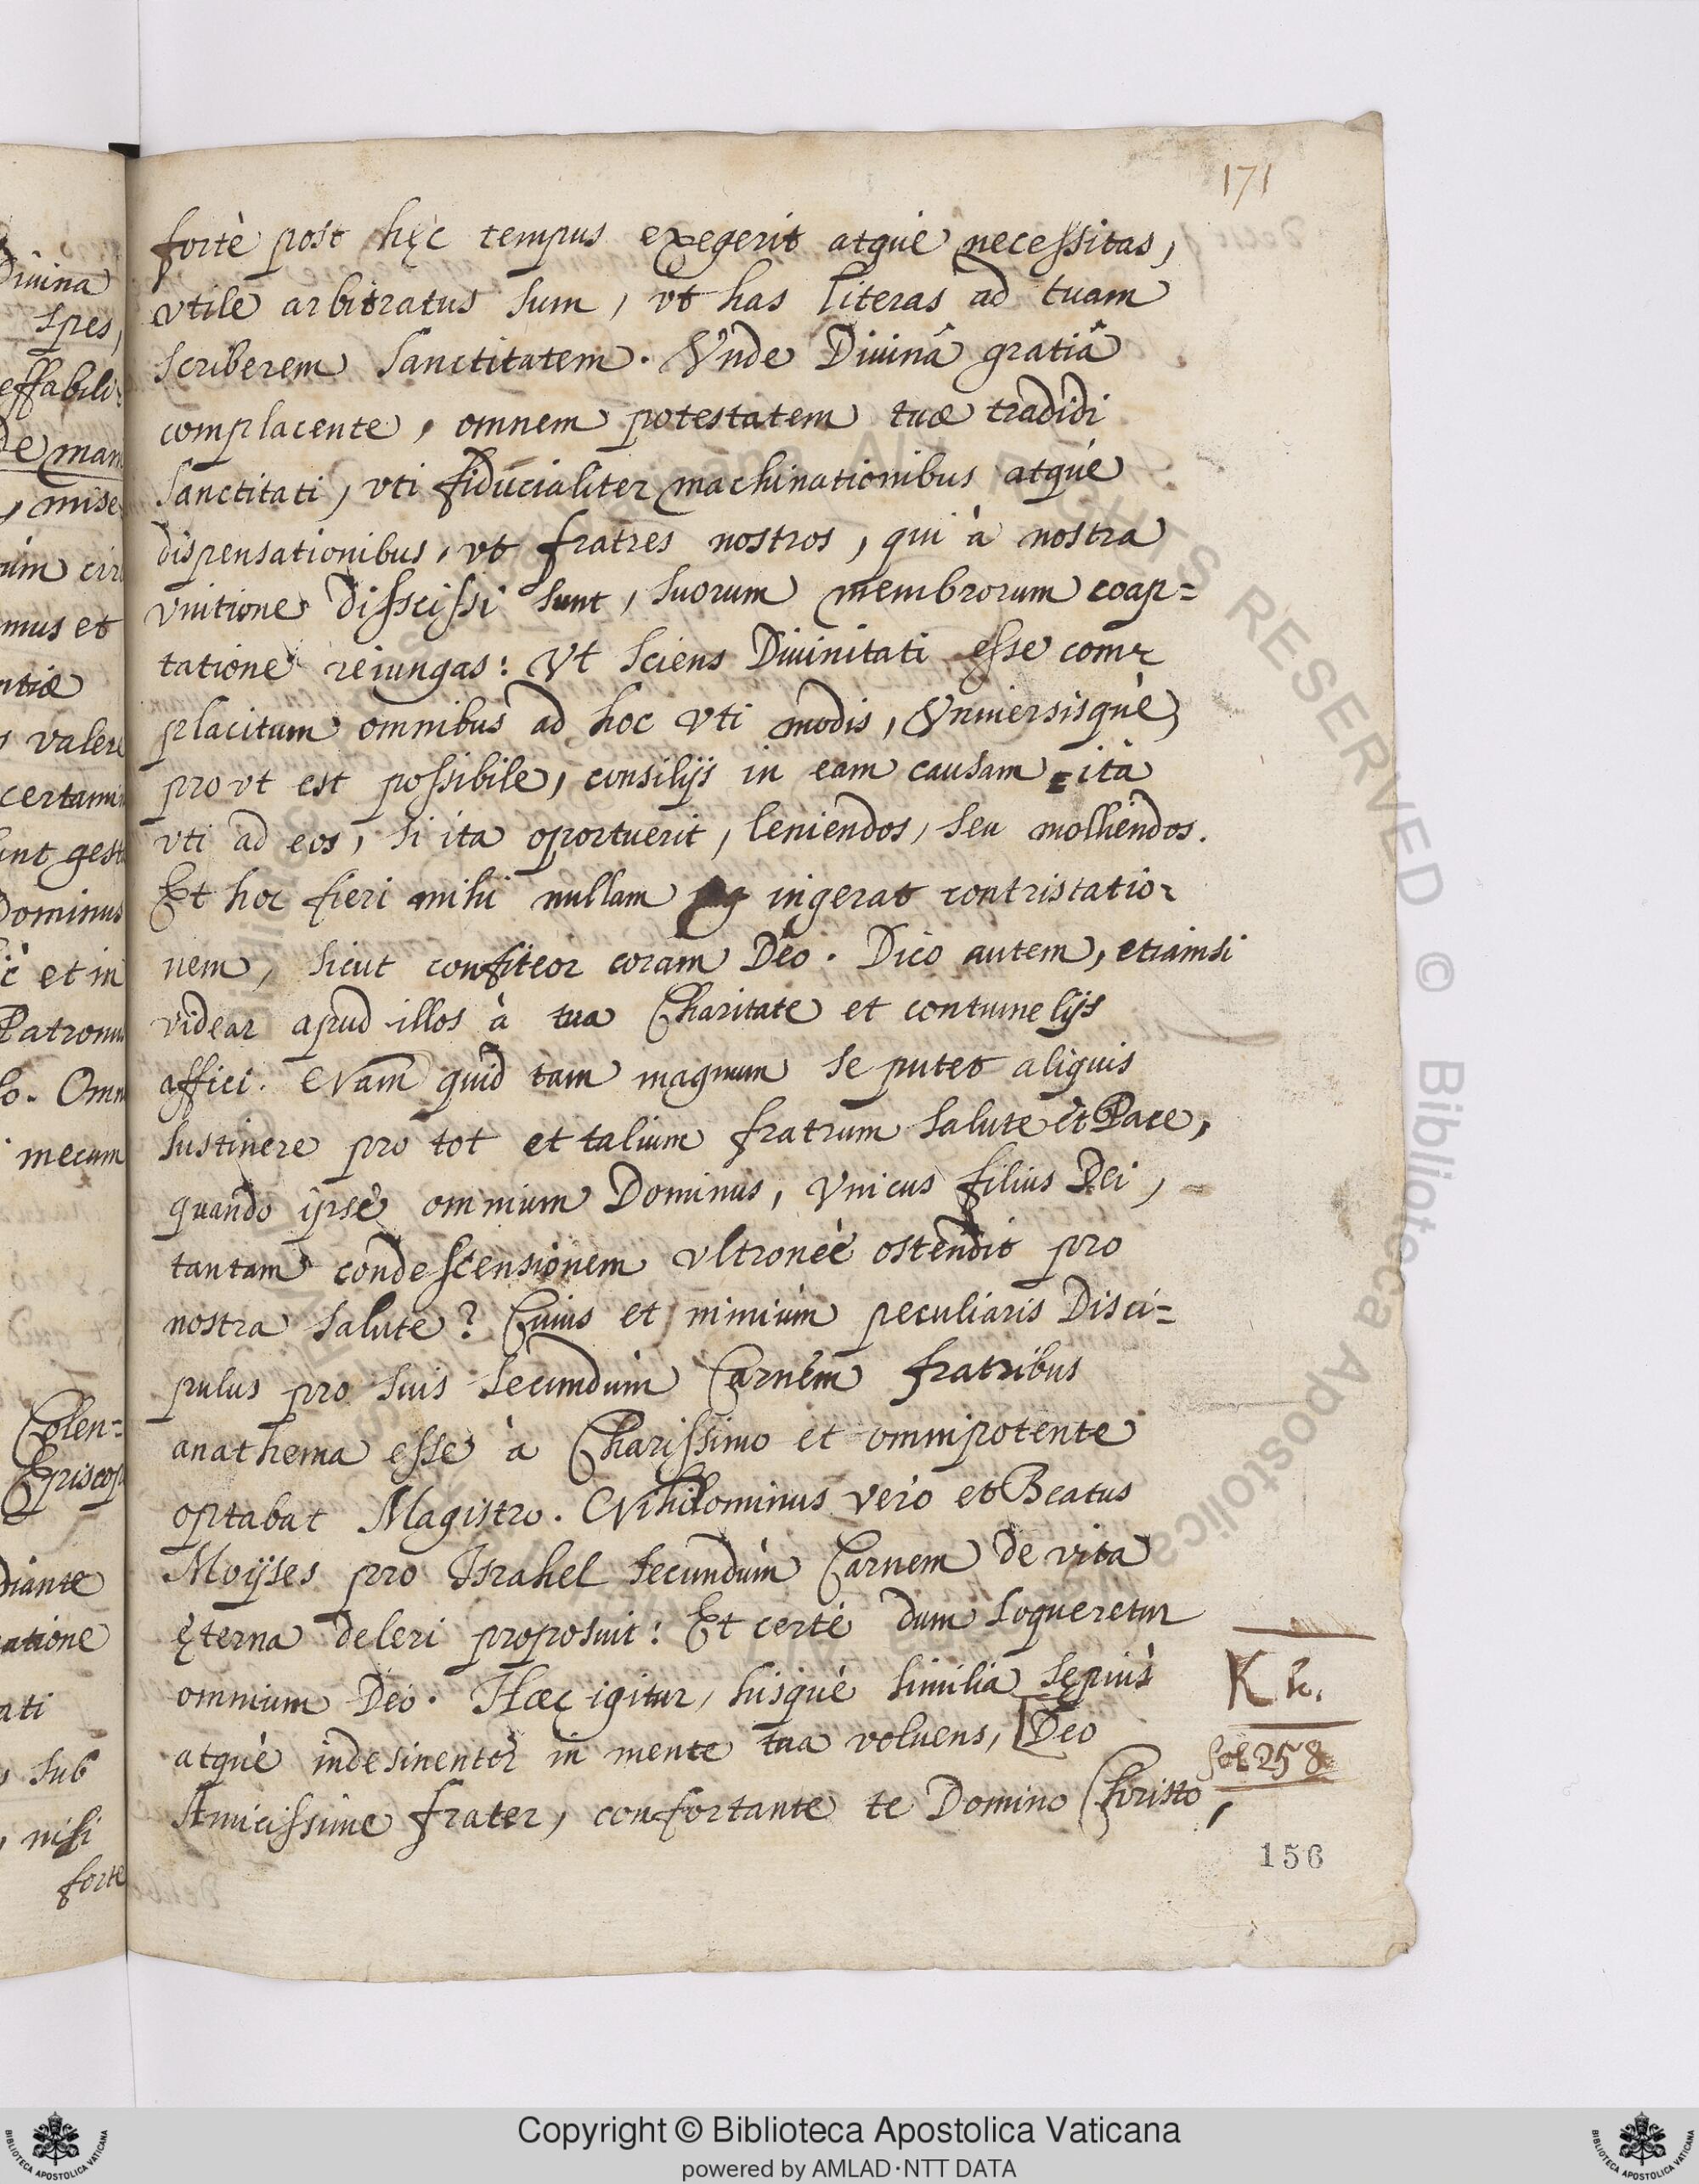 171
fortè post hęc tempus exegerit atquè necessitas,
vtile arbitratus sum, vt has literas ad tuam
scriberem Sanctitatem. Vnde Diuinâ gratiâ
complacente, omnem potestatem tuæ tradidi
Sanctitati, vti fiducialiter machinationibus atquè
dispensationibus, vt fratres nostros, qui à nostra
vnitione disscissi sunt, suorum membrorum coap=
tatione reiungas: Vt sciens Diuinitati esse com-
placitum omnibus ad hoc vti modis, Vniuersisquè,
pro vt est possibile, consilijs in eam causam ità
vti ad eos, si ita oportuerit, leniendos, seu molliendos.
Et hoc fieri mihi nullam ingerat contristatio-
nem, sicut confiteor coram Deo. Dico autem, etiamsi
videar apud illos à tua Charitate et contumelijs
affici. Nam quid tam magnum se putet aliquis
sustinere pro tot et talium fratrum salute et Pace,
quando ipse omnium Dominus, Vnicus filius Dei,
tantam condescensionem vltroneè ostendit pro
nostra salute? Cuius et nimiùm peculiaris Disci=
pulus pro suis secundùm Carnem fratribus
anathema esse à Charissimo et omnipotente
optabat Magistro. Nihilominus verò et Beatus
Moijses pro Israhel secundùm Carnem de vita
ęterna deleri proposuit: Et certè dum loqueretur
omnium Deo. Hæc igitur, hisquè similia sępiùs
atquè indesinenter in mente tua voluens, [Deo
Amicissime frater, confortante te Domino Christo,
K k.
fol 258
156
Diuina
spes,
effabili
de man
, mise
ùm cir
mus et
ntiæ
s valere
certami
unt gest
Dominus
et in
Patronu
Omn
mecum
Colen=
Episcop
diante
atione
ati
s sub
, nisi
forte
Copyright © Biblioteca Apostolica Vaticana
powered by AMLAD·NTT DATA